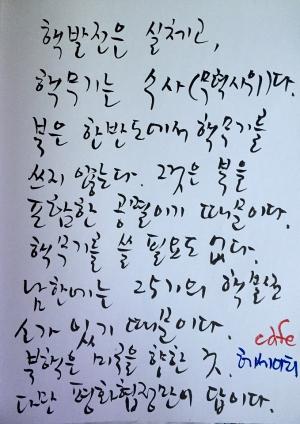 핵발전은 실체고,
핵무기는 수사(막혁사위)다.
북은 한반도에서 핵무기를
쓰지 않는다. 그것은 북을
포함한 공멸이기 때문이다.
핵무기를 쓸 필요도 없다.
남한에는 25기의 핵발전
소가 있기 때문이다.
북핵은 미국을 향한 것.
다만 평화협정만이 답이다.
cafe
헤세이티